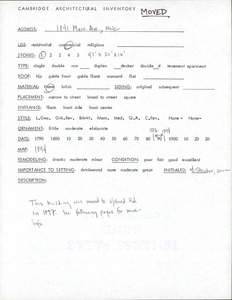 CAMBRIDGE ARCHITECTURAL INVENTORY MOVED
ADDRESS: 1841 Mass. Ave.,
USE: residential commercial religious
STORIES: 1 2 3 4 5
TYPE: single double row duplex decker double d tenement apartment
ROOF: hip gable front gable flank mansard flat
MATERIAL: frame brick SIDING: original subsequent
PLACEMENT: narrow to street broad to street square
ENTRANCE: flank front side front center
ORNAMENT: little moderate elaborate
DATE: 1790 1800 10 20 30 40 50 60 70 80 90 1900 10 20 30
MAP: 1894
REMODELING: drastic moderate minor CONDITION: poor fair good excellent
IMPORTANCE TO SETTING: detrimental none moderate great INITIALED:
DESCRIPTION:
This building was moved to Upland Rd.
in 1987. See following pages for more
info.